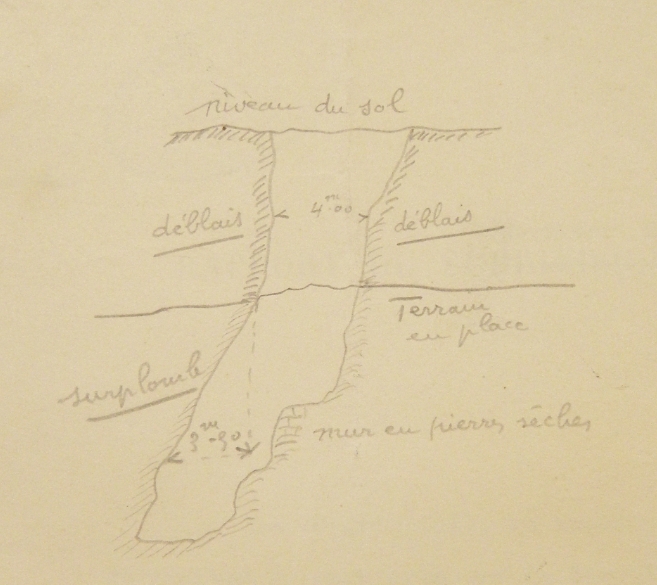 niveau du sol
déblais
4m.00
déblais
Terrain
en place
surplomb
mur en pierres sèches